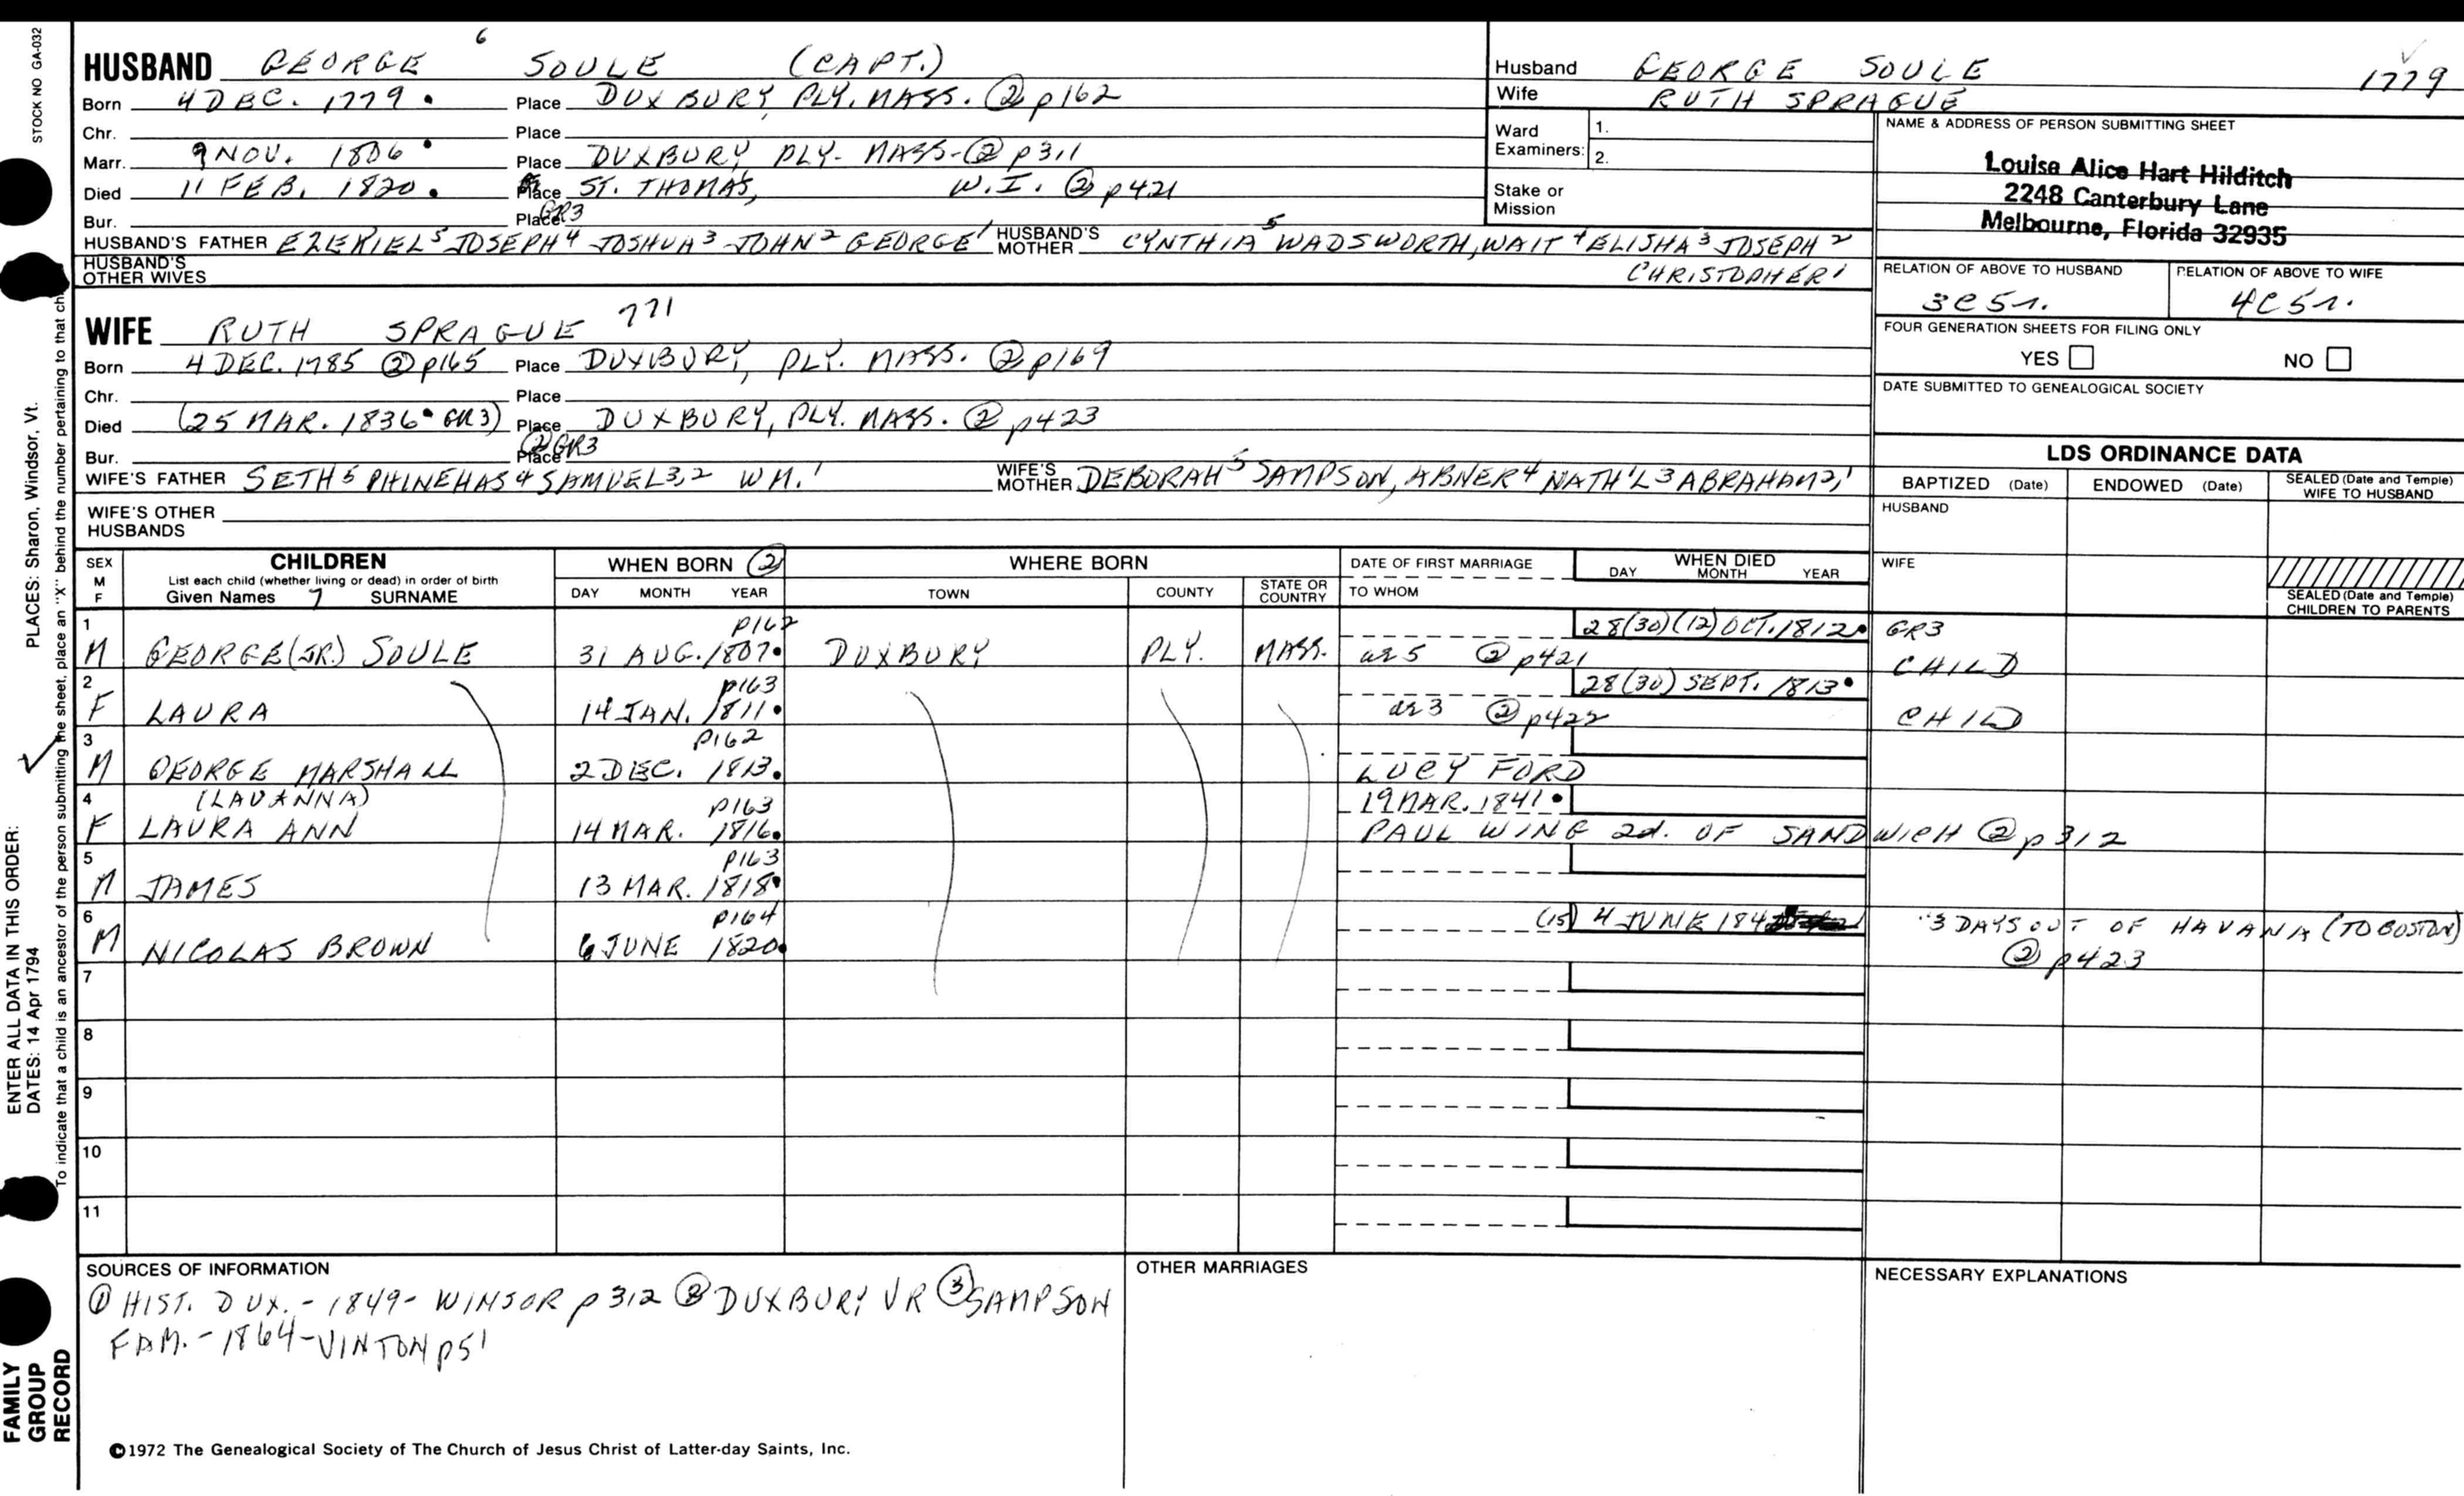 STOCK NO GA-032
PLACES: Sharon, Windsor, Vt.
ENTER ALL DATA IN THIS ORDER:
DATES: 14 Apr 1794
To indicate that a child is an ancestor of the person submitting the sheet, place an "X" behind the number pertaining to that ch
FAMILY
GROUP
RECORD
HUSBAND GEORGE 6 SOULE (CAPT.)
Born 4 DEC. 1779. Place DUXBURY, PLY. MASS. ② p162
Chr. Place
Marr. 9 NOV. 1806. Place DUXBURY, PLY. MASS. ② p311
Died 11 FEB. 1820. Place ST. THOMAS, W.I. ② p421
Bur. Place GR3
HUSBAND'S FATHER EZEKIEL5 JOSEPH4 JOSHUA3 JOHN2 GEORGE1 HUSBAND'S MOTHER CYNTHIA5 WADSWORTH, WAIT4 ELISHA3 JOSEPH2
CHRISTOPHER1
HUSBAND'S OTHER WIVES
WIFE RUTH SPRAGUE 771
Born 4 DEC. 1785 ② p165 Place DUXBURY, PLY. MASS. ② p169
Chr. Place
Died (25 MAR. 1836. GR3) Place DUXBURY, PLY. MASS. ② p423
Bur. Place ② GR3
WIFE'S FATHER SETH5 PHINEHAS4 SAMUEL3,2 WM.1 WIFE'S MOTHER DEBORAH5 SAMPSON, ABNER4 NATH'L3 ABRAHAM2,1
WIFE'S OTHER HUSBANDS
Husband GEORGE SOULE 1779
Wife RUTH SPRAGUE
Ward Examiners: 1.
2.
Stake or Mission
NAME & ADDRESS OF PERSON SUBMITTING SHEET
Louise Alice Hart Hilditch
2248 Canterbury Lane
Melbourne, Florida 32935
RELATION OF ABOVE TO HUSBAND RELATION OF ABOVE TO WIFE
3C5r. 4C5r.
FOUR GENERATION SHEETS FOR FILING ONLY
YES NO
DATE SUBMITTED TO GENEALOGICAL SOCIETY
LDS ORDINANCE DATA
BAPTIZED (Date) ENDOWED (Date) SEALED (Date and Temple) WIFE TO HUSBAND
HUSBAND
WIFE
SEALED (Date and Temple) CHILDREN TO PARENTS
SEX M F CHILDREN WHEN BORN ② WHERE BORN DATE OF FIRST MARRIAGE WHEN DIED
List each child (whether living or dead) in order of birth
Given Names 7 SURNAME DAY MONTH YEAR TOWN COUNTY STATE OR COUNTRY TO WHOM DAY MONTH YEAR
1 p162 28(30)(12) OCT. 1812. GR3
M GEORGE (JR.) SOULE 31 AUG. 1807. DUXBURY PLY. MASS. ae 5 ② p421 CHILD
2 p163 28(30) SEPT. 1813.
F LAURA 14 JAN. 1811. ae 3 ② p422 CHILD
3 p162
M GEORGE MARSHALL 2 DEC. 1813. LUCY FORD
4 (LAVANNA) p163 19 MAR. 1841.
F LAURA ANN 14 MAR. 1816. PAUL WING 2d. OF SANDWICH ② p312
5 p163
M JAMES 13 MAR. 1818.
6 p164 (15) 4 JUNE 184 "3 DAYS OUT OF HAVANA (TO BOSTON)
M NICOLAS BROWN 6 JUNE 1820. ② p423
7
8
9
10
11
SOURCES OF INFORMATION
① HIST. DUX. - 1849 - WINSOR p312 ② DUXBURY VR ③ SAMPSON
FAM. - 1864 - VINTON p51
OTHER MARRIAGES
NECESSARY EXPLANATIONS
©1972 The Genealogical Society of The Church of Jesus Christ of Latter-day Saints, Inc.